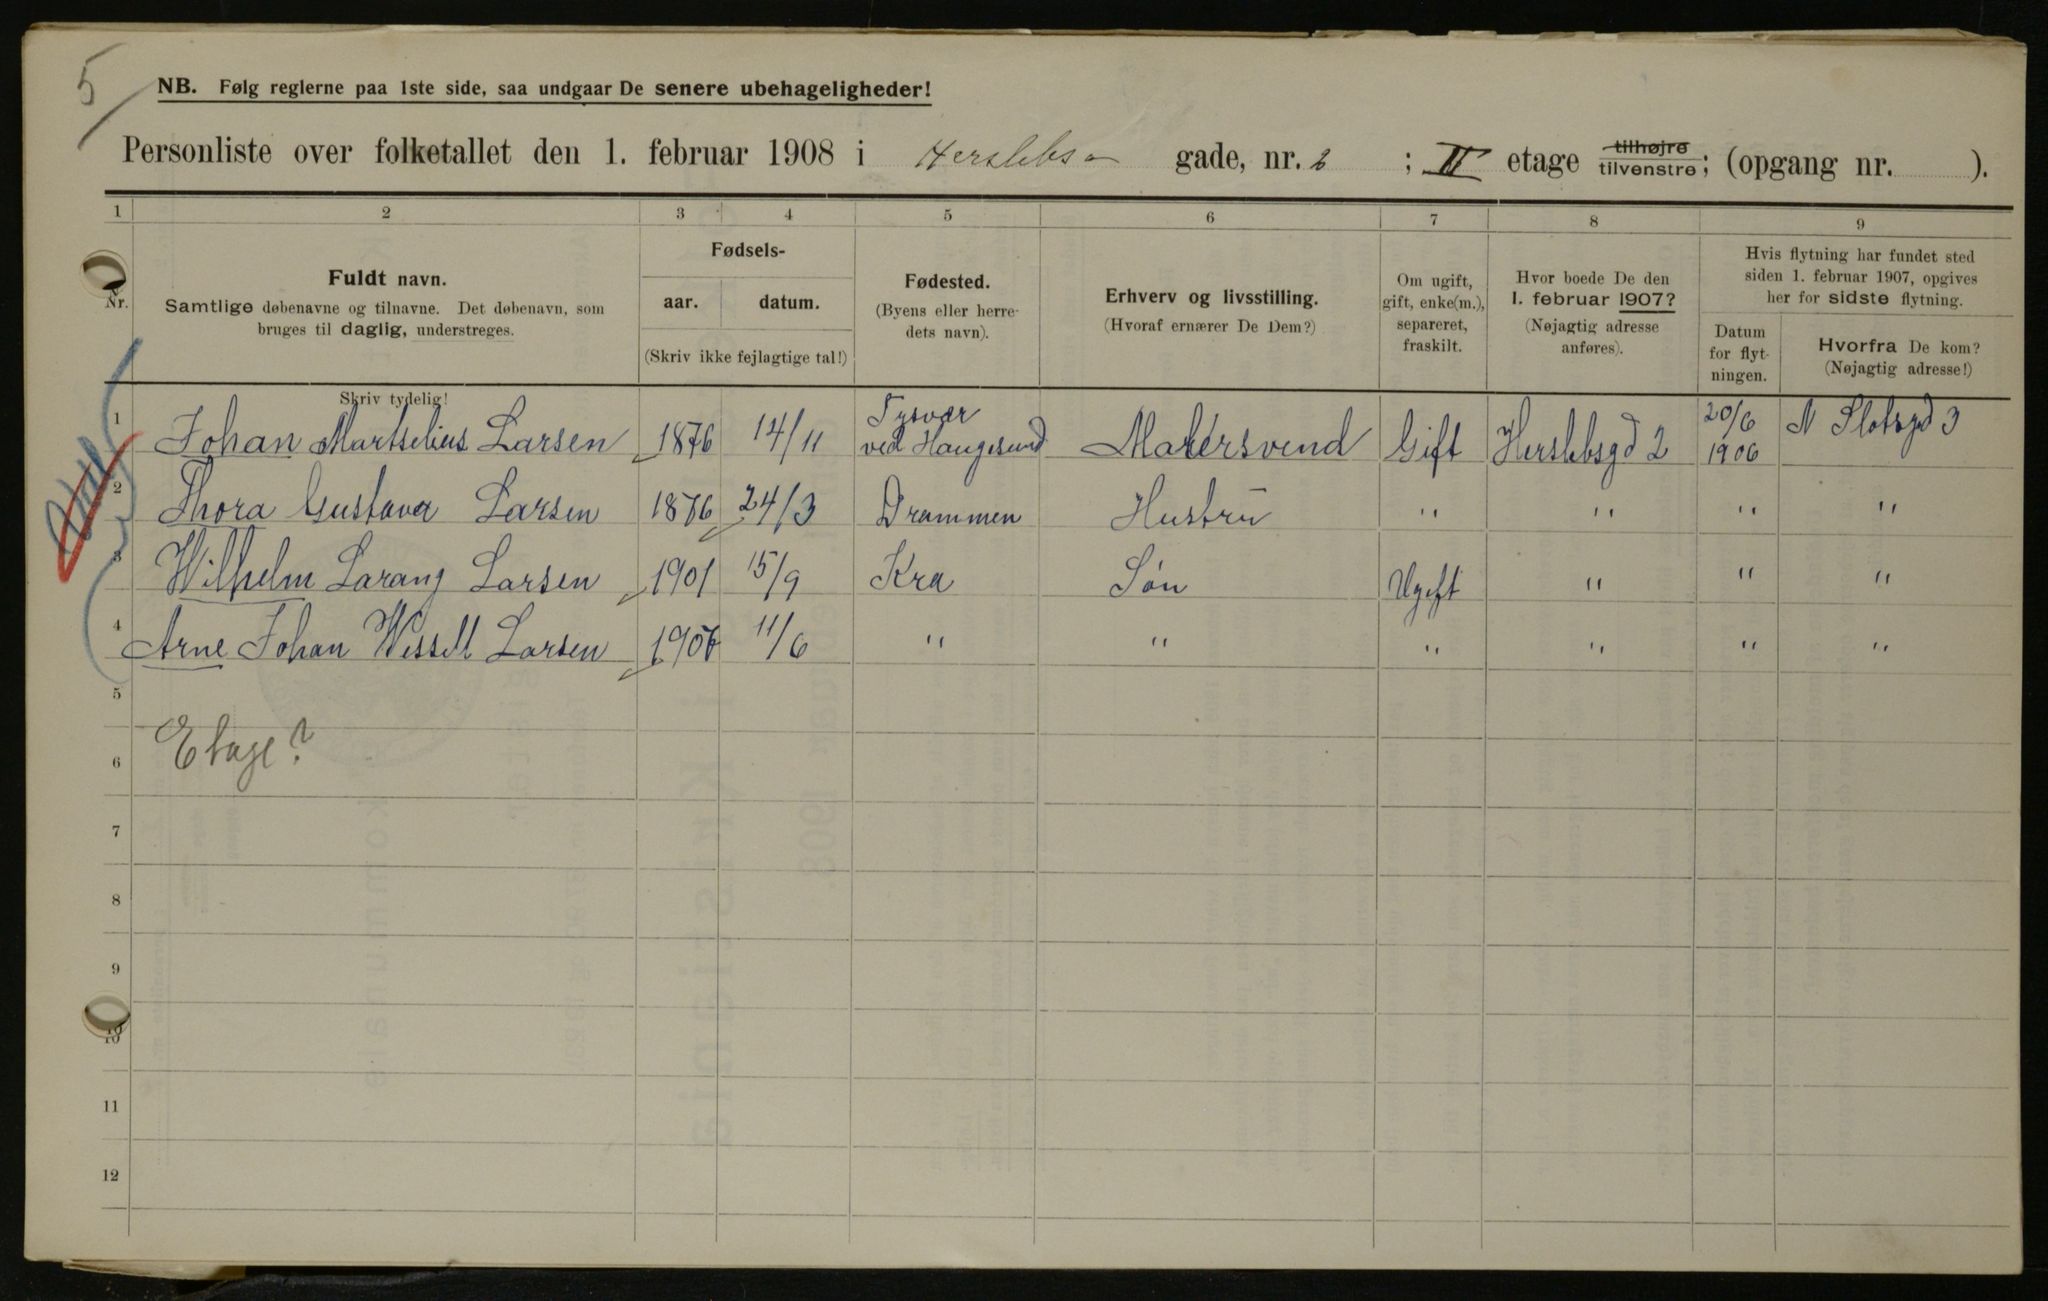 5
NB. Følg reglerne paa 1ste side, saa undgaar De senere ubehageligheder!
Personliste over folketallet den 1. februar 1908 i Herslebs gade, nr. 2 ; II etage tilhøjre tilvenstre; (opgang nr. ).
1 2 3 4 5 6 7 8 9
Nr.
Fuldt navn.
Samtlige døbenavne og tilnavne. Det døbenavn, som
bruges til daglig, understreges.
Skriv tydelig!
Fødsels-
aar. datum.
(Skriv ikke fejlagtige tal!)
Fødested.
(Byens eller herre-
dets navn).
Erhverv og livsstilling.
(Hvoraf ernærer De Dem?)
Om ugift,
gift, enke(m.),
separeret,
fraskilt.
Hvor boede De den
1. februar 1907?
(Nøjagtig adresse
anføres).
Hvis flytning har fundet sted
siden 1. februar 1907, opgives
her for sidste flytning.
Datum
for flyt-
ningen.
Hvorfra De kom?
(Nøjagtig adresse!)
1 Johan Martselius Larsen 1876 14/11 Tysvær ved Haugesund Malersvend Gift Herslebsgd 2 20/6 1906 N Slotsgd 3
2 Thora Gustava Larsen 1876 24/3 Drammen Hustru " " " "
3 Wilhelm Larang Larsen 1901 15/9 Kra Søn Ugift " " "
4 Arne Johan Wessell Larsen 1906 11/6 " " " " " "
5
6 Etage?
7
8
9
10
11
12